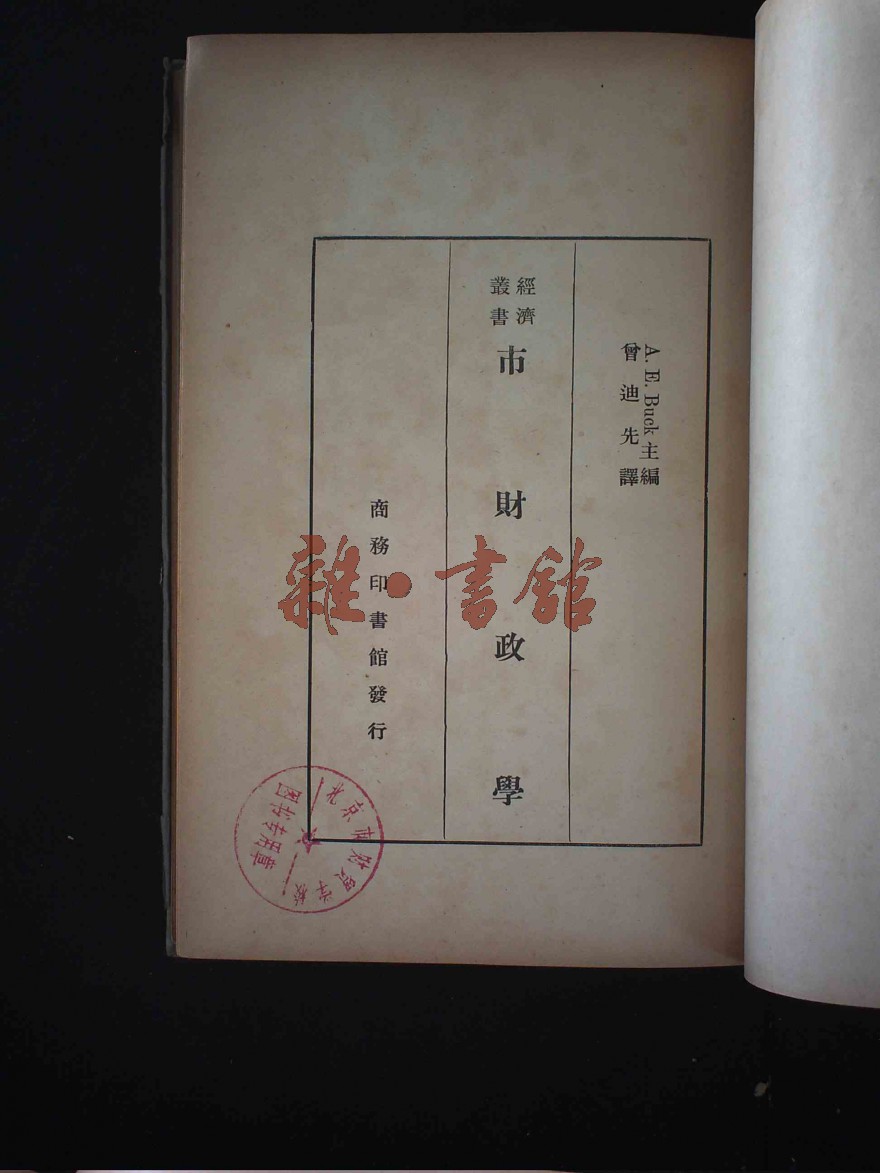 A. E. Buck 主編
曾迪先譯
經濟
叢書
市財政學
商務印書館發行
雜·書館
北京市財貿学校
图书专用章